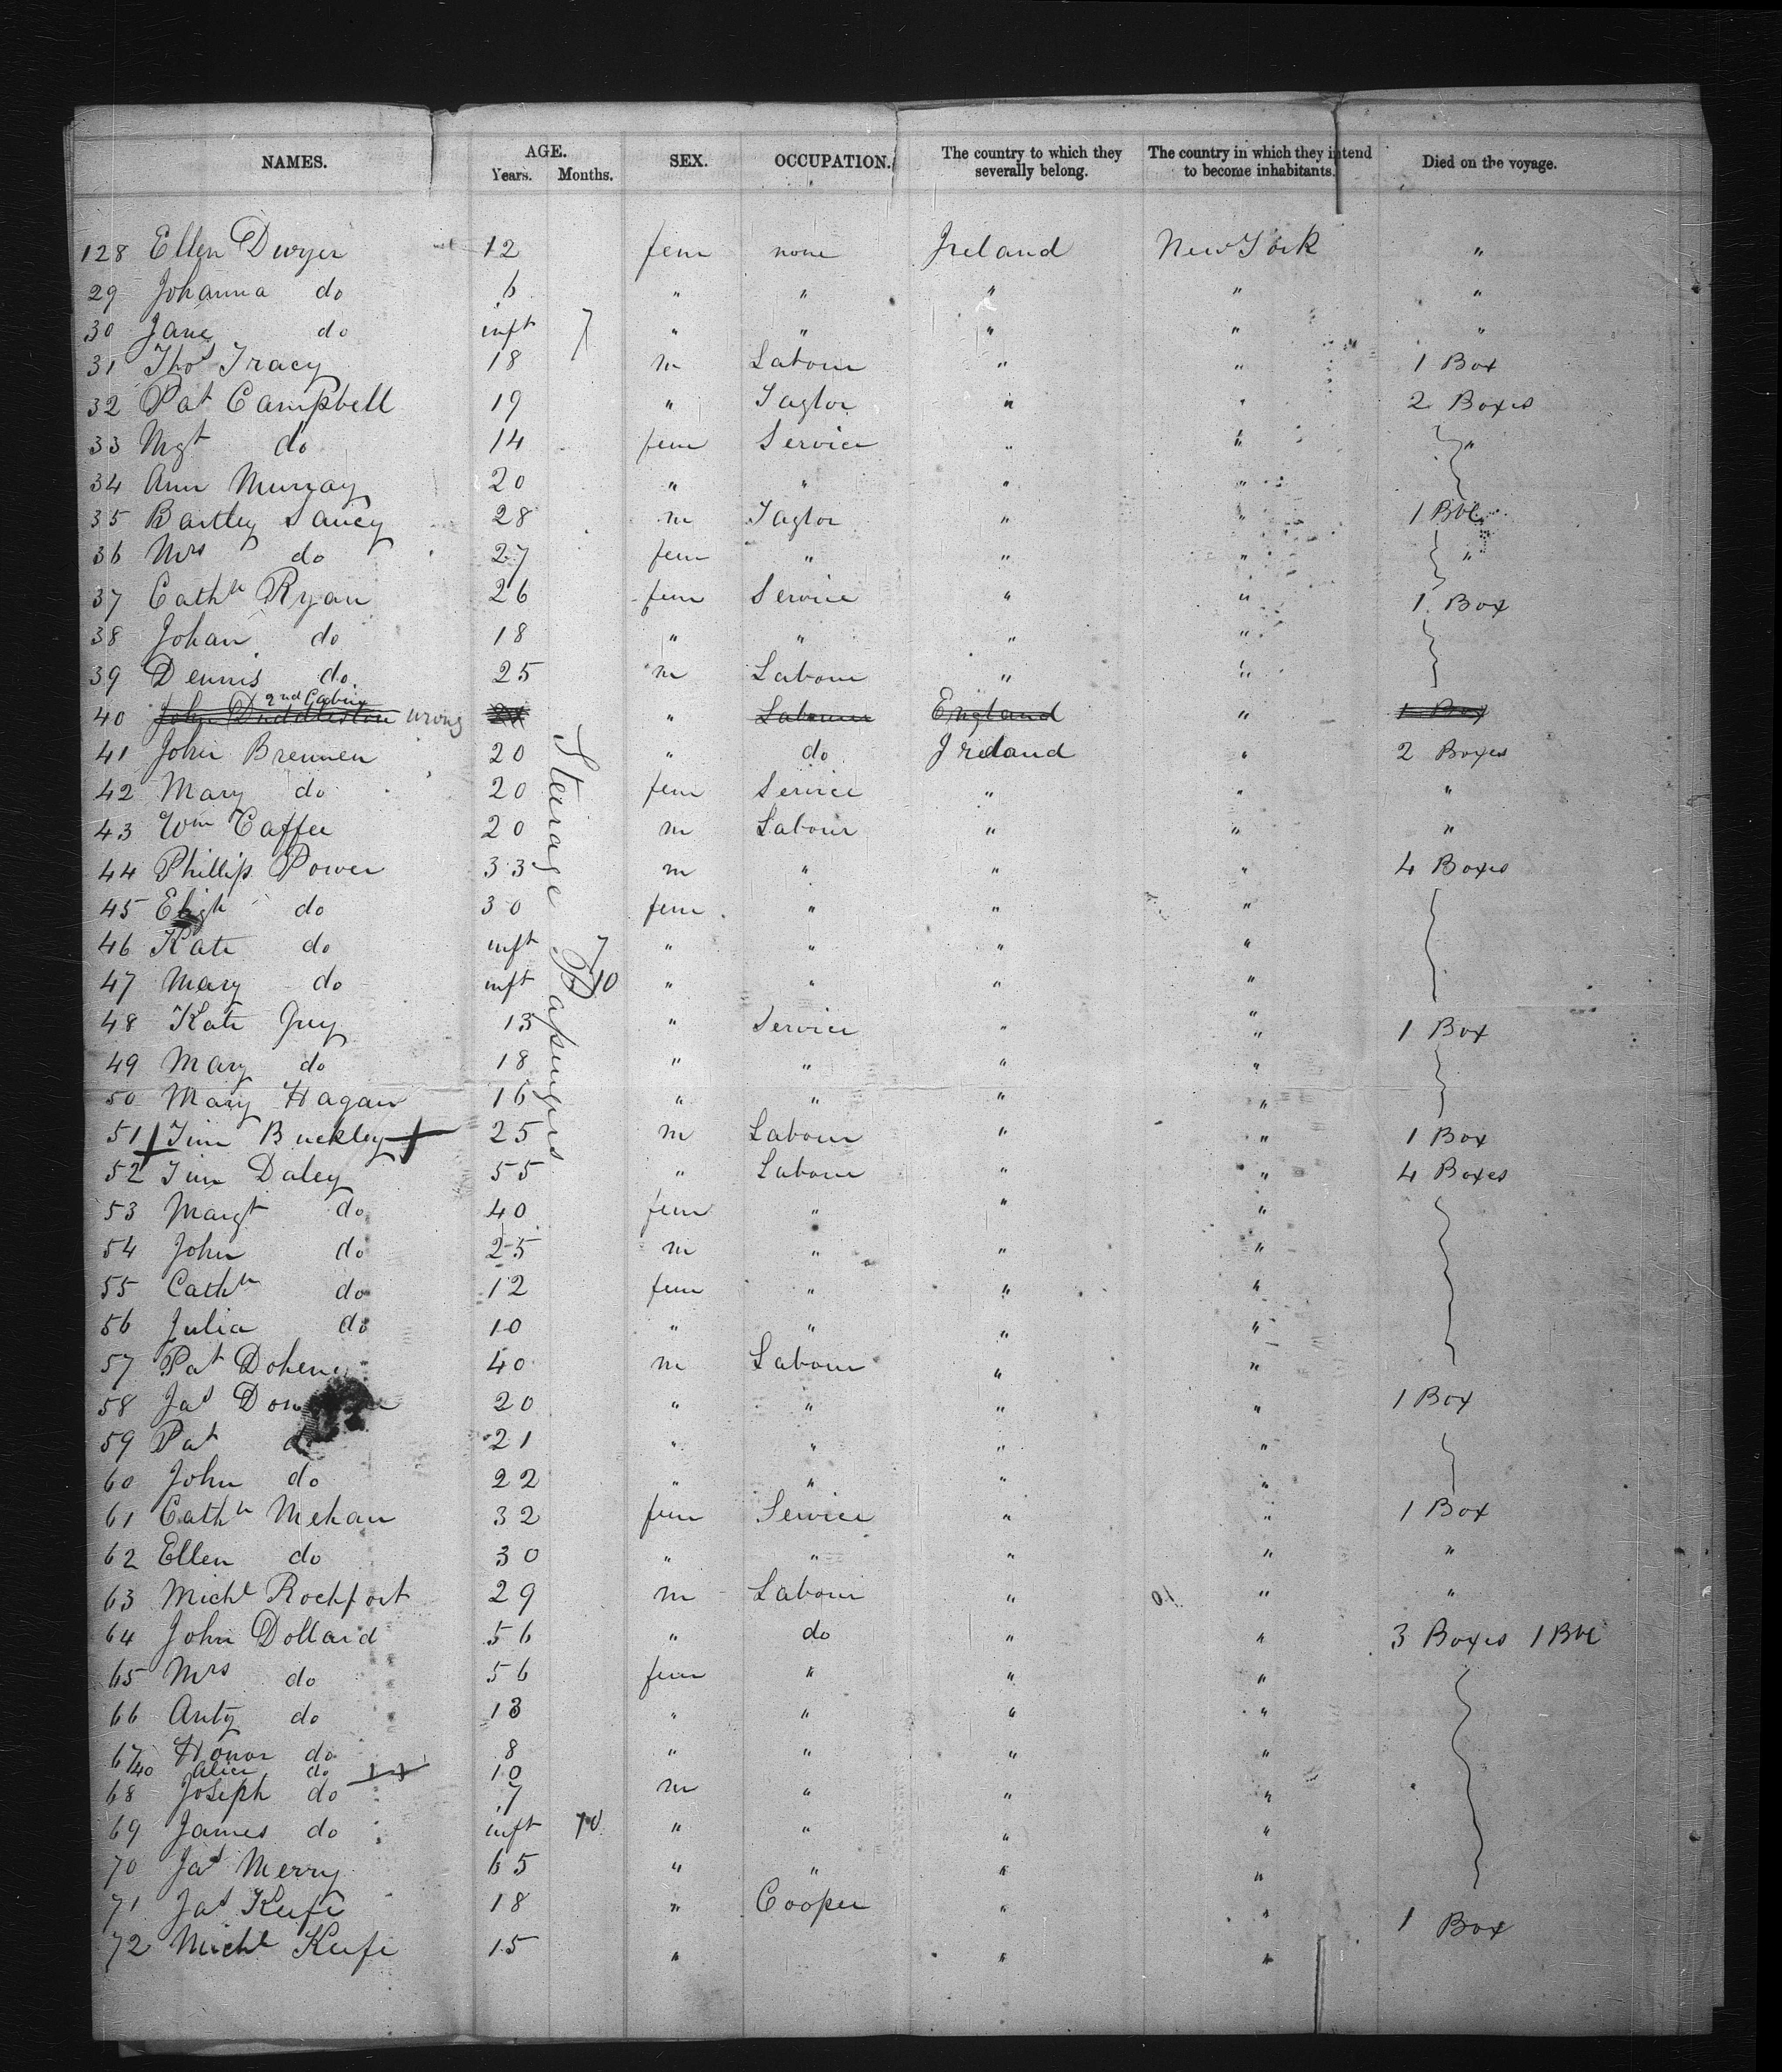 NAMES. AGE. Years. Months. SEX. OCCUPATION. The country to which they severally belong. The country in which they intend to become inhabitants. Died on the voyage.
128 Ellen Dwyer 12 fem none Ireland New York "
29 Johanna do 6 " " " " "
30 Jane do inft 7 " " " " "
31 Thos Tracy 18 m Labour " " 1 Box
32 Pat Campbell 19 " Taylor " " 2 Boxes
33 Mgt do 14 fem Service " " "
34 Ann Murray 20 " " " "
35 Bartley 28 m Taylor " " 1 Bbl
36 Mrs do 27 fem " " " "
37 Cathn Ryan 26 fem Service " " 1 Box
38 Johan do 18 " " " "
39 Dennis do 25 m Labour " "
40 John Duddleston 2nd Cabin wrong " Labour England " 1 Box
41 John Brennen 20 " do Ireland " 2 Boxes
42 Mary do 20 fem Service " " "
43 Wm Caffee 20 m Labour " " "
44 Phillip Power 33 m " " " 4 Boxes
45 do 30 fem " " "
46 Kate do inft 7 " " " "
47 Mary do inft 10 " " " "
48 Kate Guy 13 " Service " " 1 Box
49 Mary do 18 " " " "
50 Mary Hagan 16 " " " "
51 Tim Buckley 25 m Labour " " 1 Box
52 Tim Daley 55 " Labour " " 4 Boxes
53 Margt do 40 fem " " "
54 John do 25 m " " "
55 Cathn do 12 fem " " "
56 Julia do 10 " " " "
57 Pat 40 m Labour " "
58 Jas 20 " " " " 1 Box
59 Pat do 21 " " " "
60 John do 22 " " " "
61 Cathn Mehan 32 fem Service " " 1 Box
62 Ellen do 30 " " " " "
63 Michl Rockfort 29 m Labour " " "
64 John Dollard 56 " do " " 3 Boxes 1 Bbl
65 Mrs do 56 fem " " "
66 Anty do 13 " " " "
67 Honor do 8 " " " "
40 Alice do 10
68 Joseph do 7 m " " "
69 James do inft 10 " " " "
70 Jas Merry 65 " " " "
71 Jas Keefe 18 " Cooper " " 1 Box
72 Michl Keefe 15 " " "
Steerage Passengers